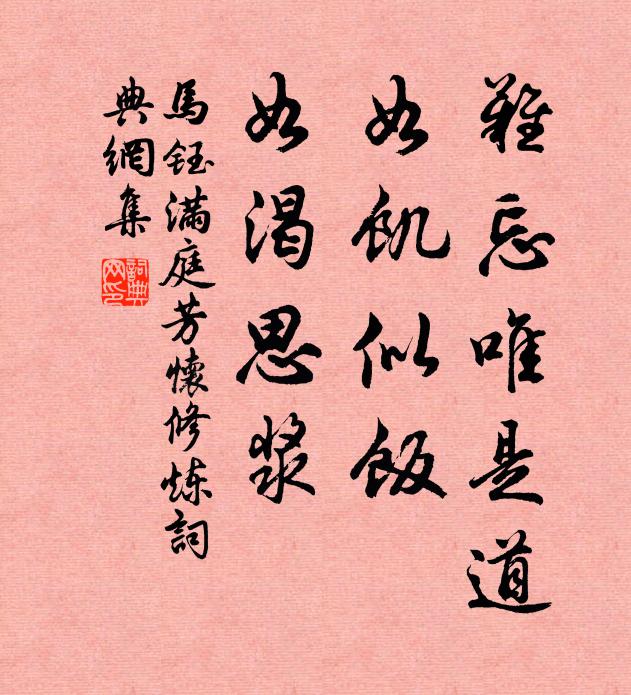 難忘唯是道
如飢似飯
如渴思漿
馬鈺滿庭芳懷修炼詞
典網集
詞典網印